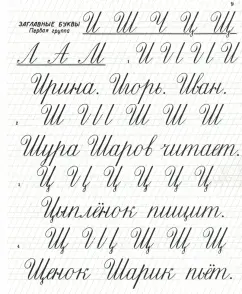 ЗАГЛАВНЫЕ БУКВЫ И Ш Ч Ц Щ
Первая группа
Л А М 1. И И И И И
Ирина. Игорь. Иван.
2. Ш Ш Ш Ш Ш
Шура Шаров читает.
3. Ц Ц Ц Ц Ц Ц
Цыплёнок пищит.
4. Щ Щ Щ Щ Щ
Щенок Шарик пьёт.